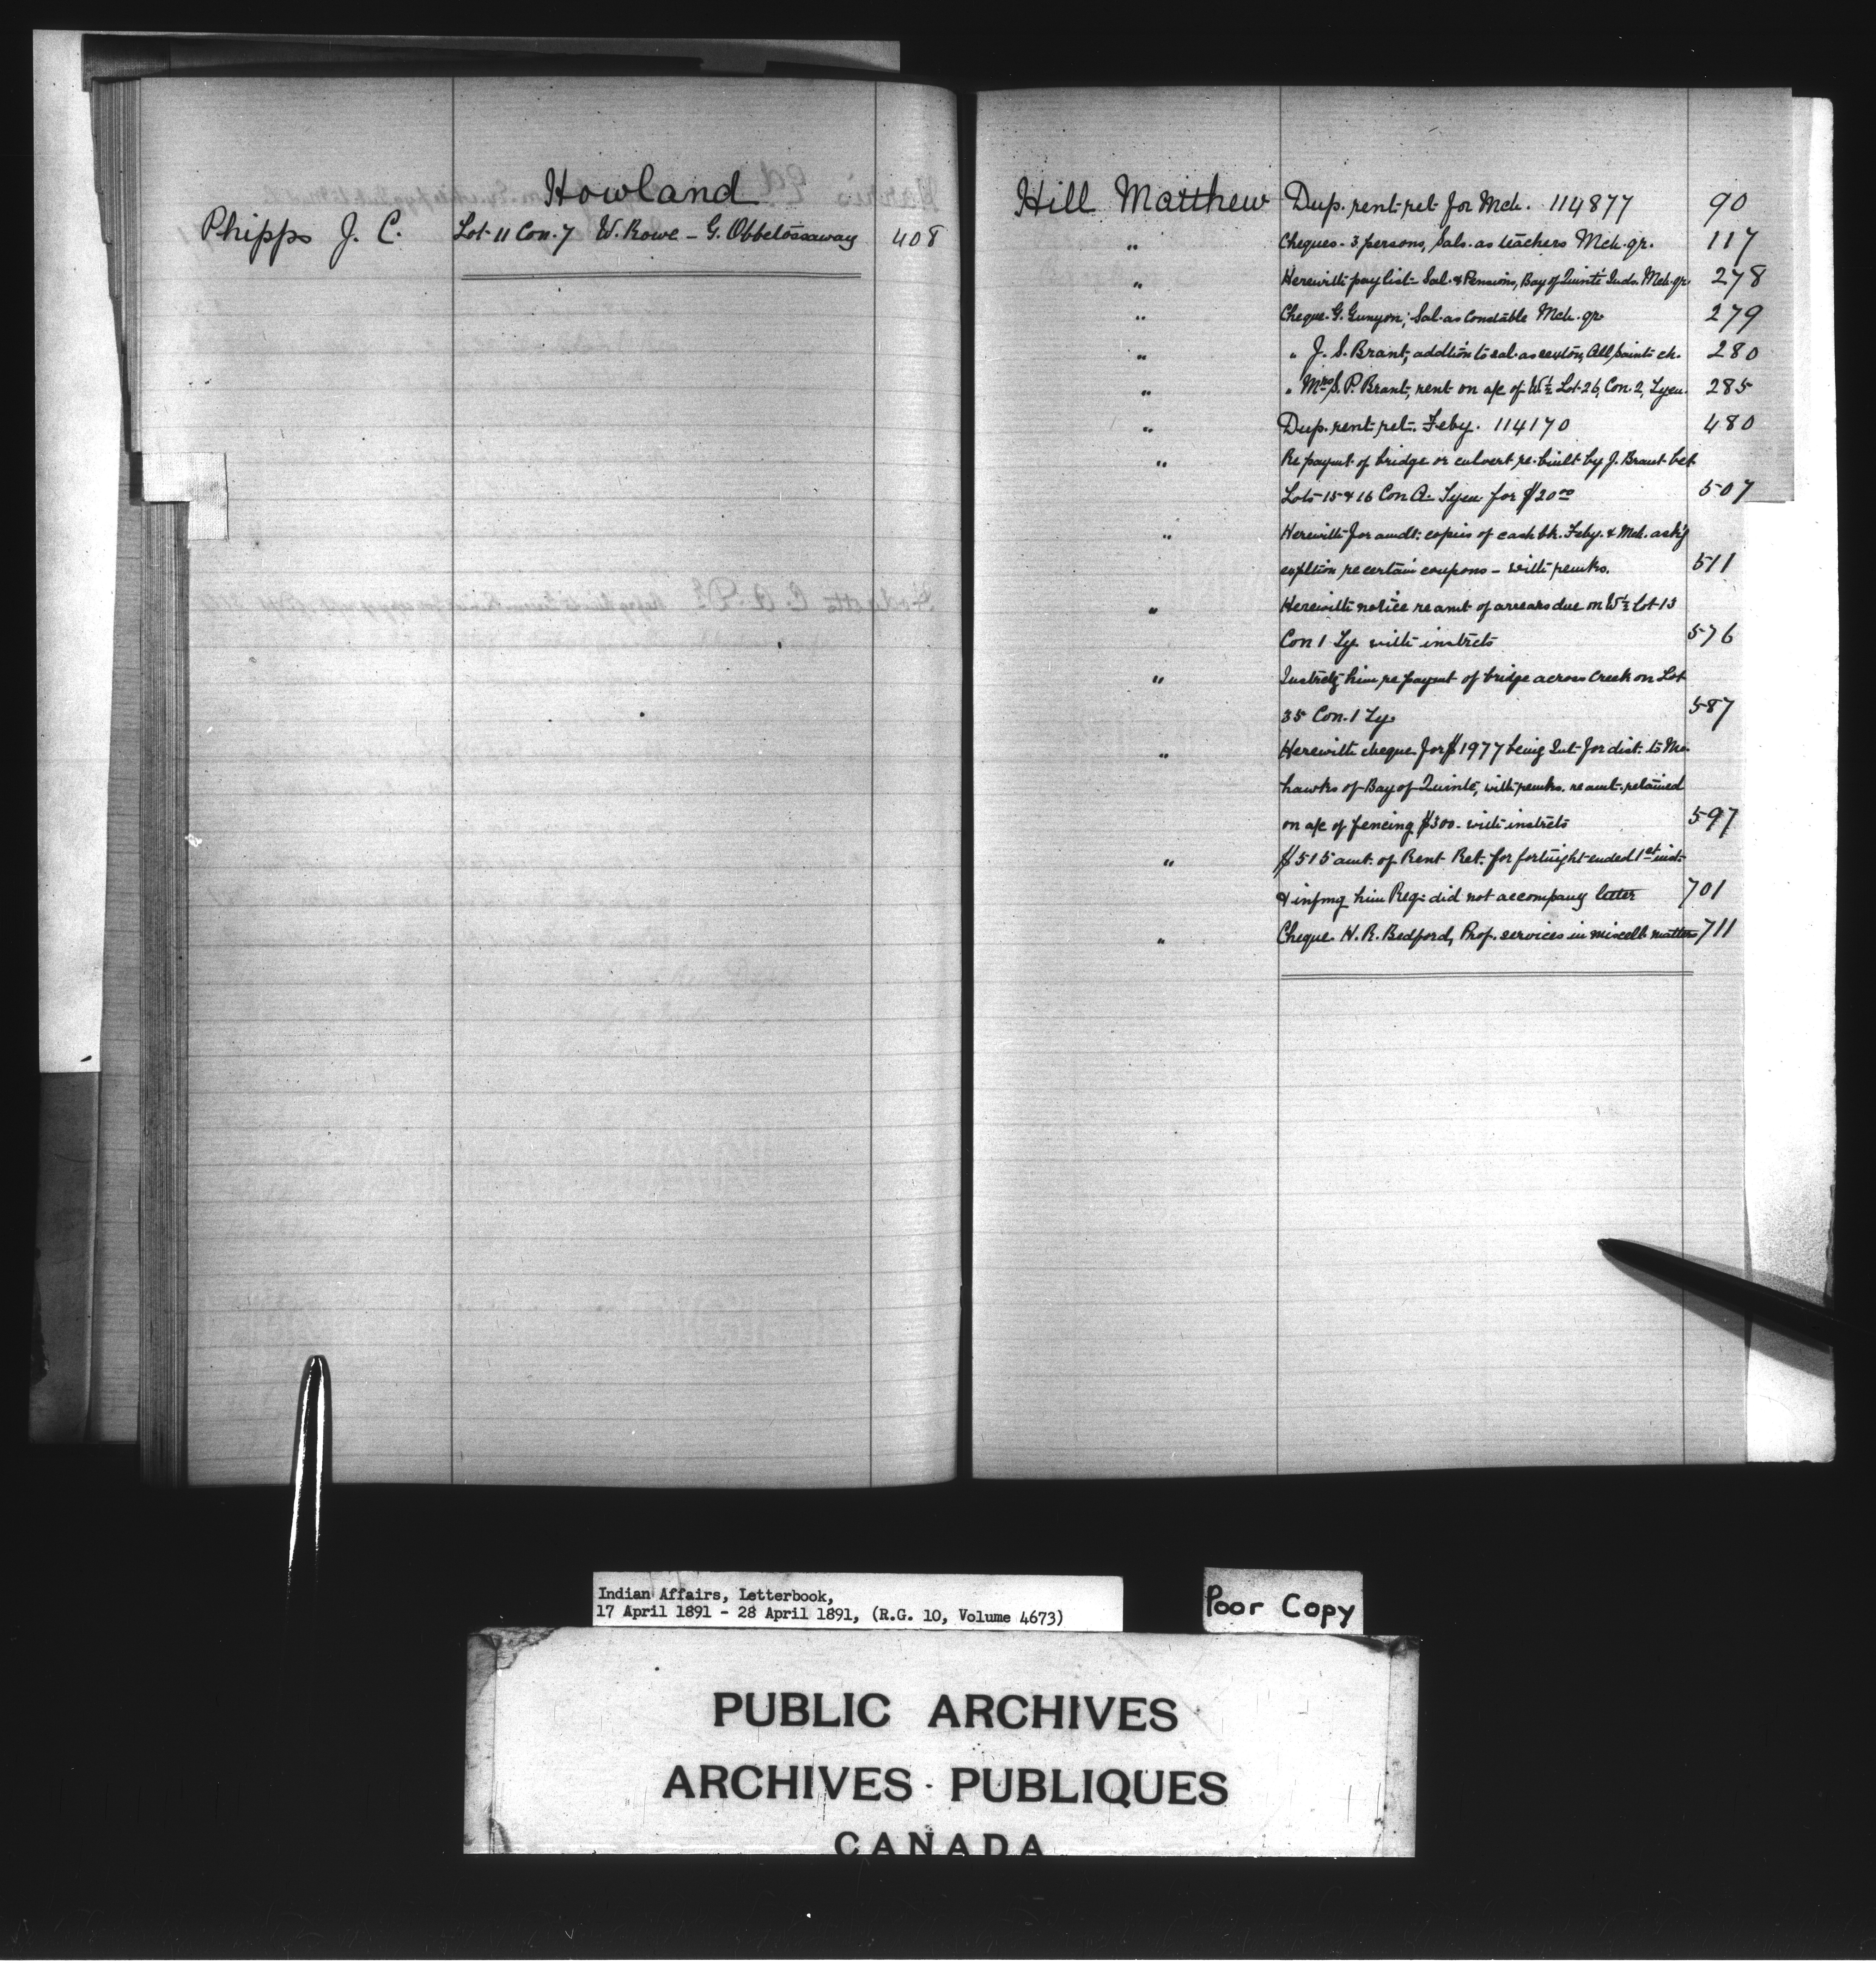 Howland
Phipps J. C. Lot 11 Con. 7 W. Rowe - G. Obbetossaway 408
Hill Matthew Dup. rent ret for Mch. 114877 90
" Cheques - 3 persons, Sals. as teachers Mch. qr. 117
" Herewith pay list - Sal. & Pensions, Bay of Quinté Inds. Mch. qr. 278
" Cheque G. Gunyon; Sal. as Constable Mch. qr. 279
" " J. S. Brant, addtion to sal. as sexton, All Saints ch. 280
" " Mrs S. P. Brant, rent on a/c of W½ Lot 26, Con. 2, Tyen. 285
" Dup. rent ret. Feby. 114170 480
" Re paymt of bridge or culvert re-built by J. Brant bet
Lots 15 & 16 Con A Tyen for $20.00 507
" Herewith for amdt. copies of cash bk. Feby. & Mch. ask'g
expltion re certain coupons - with remks. 511
" Herewith notice re amt of arrears due on W½ Lot 13
Con 1 Ty. with instrcts 576
" Instrctg him re paymt of bridge across Creek on Lot
35 Con. 1 Ty. 587
" Herewith cheque for $1977 being Int for dist. to Mo-
hawks of Bay of Quinté, with remks. re amt. retained
on a/c of fencing $300 - with instrcts 597
" $515 amt. of Rent Ret. for fortnight ended 1st inst.
& infmg him Req. did not accompany letter 701
" Cheque W. R. Bedford, Prof. services in miscell matters 711
Indian Affairs, Letterbook,
17 April 1891 - 28 April 1891, (R.G. 10, Volume 4673)
Poor Copy
PUBLIC ARCHIVES
ARCHIVES PUBLIQUES
CANADA